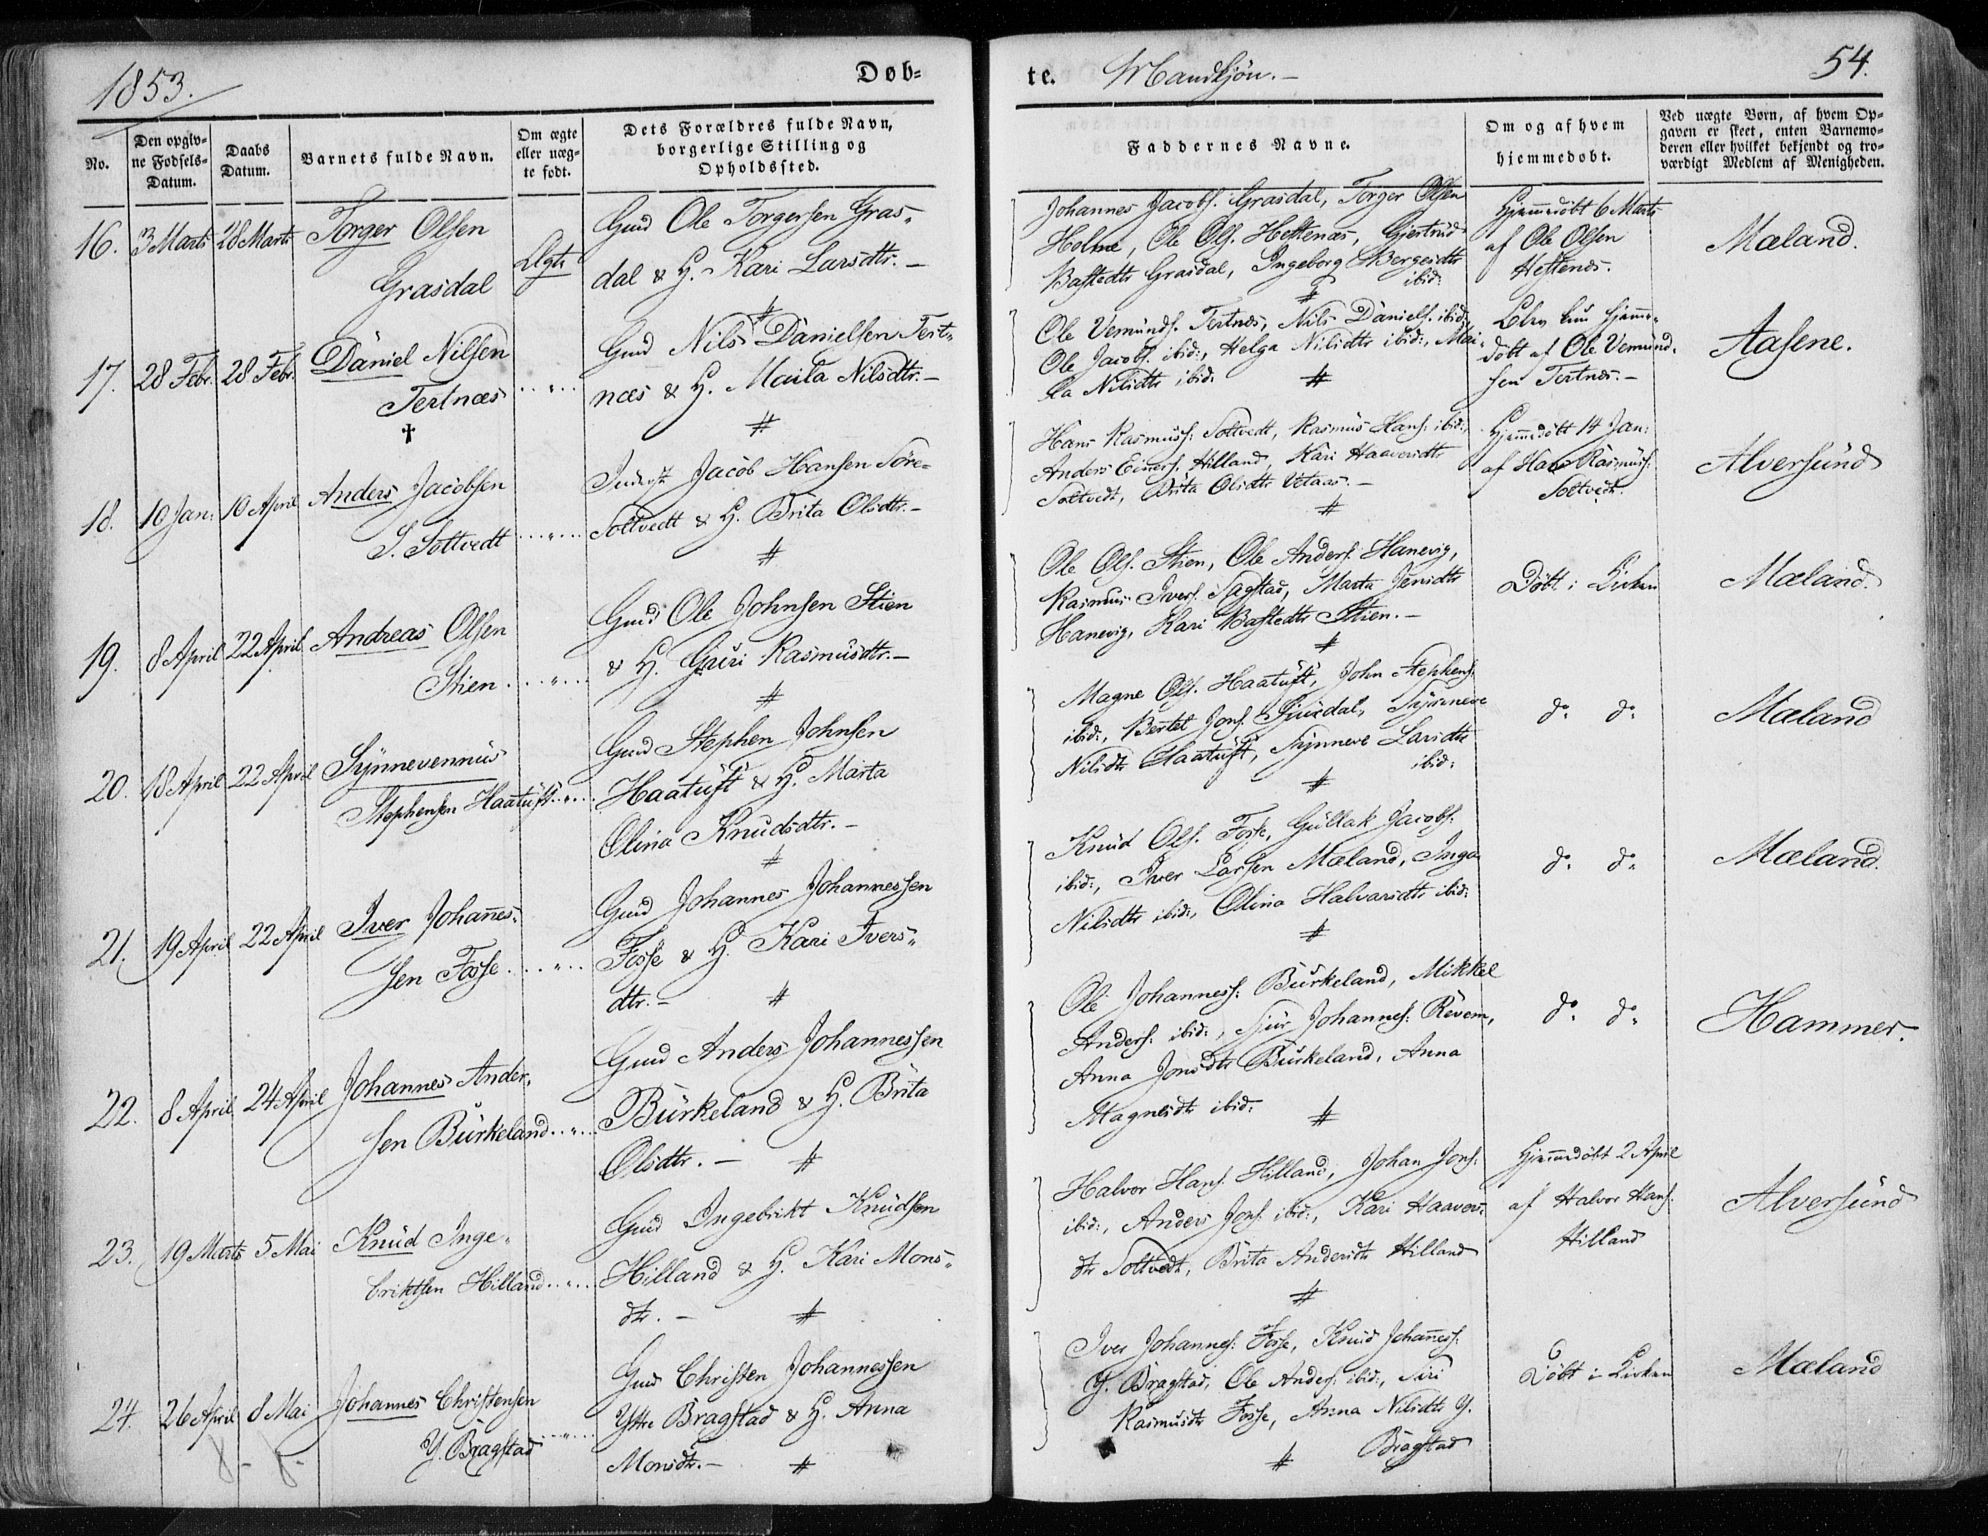 1853.
Døb=
te. Mandkjøn.
54.
No.
Den opgiv=
ne Fødsels=
Datum.
Daabs
Datum.
Barnets fulde Navn.
Om ægte
eller uæg=
te født.
Dets Forældres fulde Navn,
borgerlige Stilling og
Opholdssted.
Faddernes Navne.
Om og af hvem
hjemmedøbt.
Ved uægte Børn, af hvem Op=
gaven er skeet, enten Barnemo=
deren eller hvilket bekjendt og tro=
værdigt Medlem af Menigheden.
16. 3 Marts 28 Marts Torger Olsen
Grasdal
Ægte
Gmd Ole Torgersen Gras=
dal & H. Kari Larsdtr. –
#
Johannes Jacobs. Grasdal, Torger Olsen
Holme, Ole Ols. Hettenæs, Gjertrud
Bastedtr Grasdal, Ingeborg Bergesdtr
ibid:
#
Hjemmedøbt 6 Marts
af Ole Olsen
Hettenes.
Mæland.
17. 28 Febr. 28 Febr. Daniel Nilsen
Tertnæs
†
Gmd Nils Danielsen Tert=
næs & H. Marta Nilsdtr. –
#
Ole Vemunds. Tertnæs, Nils Daniels. ibid:,
Ole Jacobs. ibid:, Helga Nilsdtr ibid:, Mar=
ta Nilsdtr ibid: #
Blev kun hjemme=
døbt af Ole Vemund=
sen Tertnæs. –
Aasene.
18. 10 Jan: 10 April Anders Jacobsen
S. Soltvedt
Inderst Jacob Hansen Søre=
Soltvedt & H. Brita Olsdtr. –
#
Hans Rasmuss: Soltvedt, Rasmus Hans: ibid:,
Anders Einers. Hilland, Kari Haaversdtr
Soltvedt, Brita Olsdtr Vetaas. –
#
Hjemmedøbt 14 Jan:
af Hans Rasmuss:
Soltvedt.
Alversund
19. 8 April 22 April Andreas Olsen
Stien
Gmd Ole Johnsen Stien
& H. Guri Rasmusdtr. –
#
Ole Ols. Stien, Ole Anders. Hanevig,
Rasmus Ivers. Sagstad, Marta Jensdtr
Hanevig, Kari Bastedtr Stien. –
#
Døbt i Kirken
Mæland.
20. 18 April 22 April Synnevennus
Stephensen Haatuft
Gmd Stephen Johnsen
Haatuft & H. Marta
Olina Knudsdtr. –
#
Magne Ols. Haatuft, John Stephens:
ibid:, Bertel Jons. Sjurdal, Synneve
Nilsdtr Haatuft, Synneve Larsdtr
ibid:
#
do do
Mæland
21. 19 April 22 April Iver Johannes=
sen Fosse
Gmd Johannes Johannessen
Fosse & H. Kari Ivers=
dtr. – #
Knud Ols. Fosse, Gullak Jacobs.
ibid:, Iver Larsen Mæland, Inga
Nilsdtr ibid:, Olina Halvarsdtr ibid:
#
do do
Mæland.
22. 8 April 24 April Johannes Ander=
sen Burkeland
Gmd Anders Johannessen
Burkeland & H. Brita
Olsdtr. – #
Ole Johanness: Burkeland, Mikkel
Anders. ibid:, Sjur Johannes: Revem,
Anna Jonsdtr Burkeland, Anna
Magnesdtr ibid: #
do do
Hammer.
23. 19 Marts 5 Mai Knud Inge=
briktsen Hilland
Gmd Ingebrikt Knudsen
Hilland & H. Kari Mons=
dtr. – #
Halvor Hans. Hilland, Johan Jons.
ibid:, Anders Jons. ibid:, Kari Haavers=
dtr Soltvedt, Brita Andersdtr Hilland
#
Hjemmedøbt 2 April
af Halvor Hans.
Hilland
Alversund
24. 26 April 8 Mai Johannes Christensen
Y. Bragstad
Gmd Christen Johannessen
Yttre Bragstad & H. Anna
Monsdtr. – #
Iver Johannes: Fosse, Knud Johanness:
Y. Bragstad, Ole Anders. ibid:, Siri
Rasmusdtr Fosse, Anna Nilsdtr Y.
Bragstad
#
Døbt i Kirken
Mæland